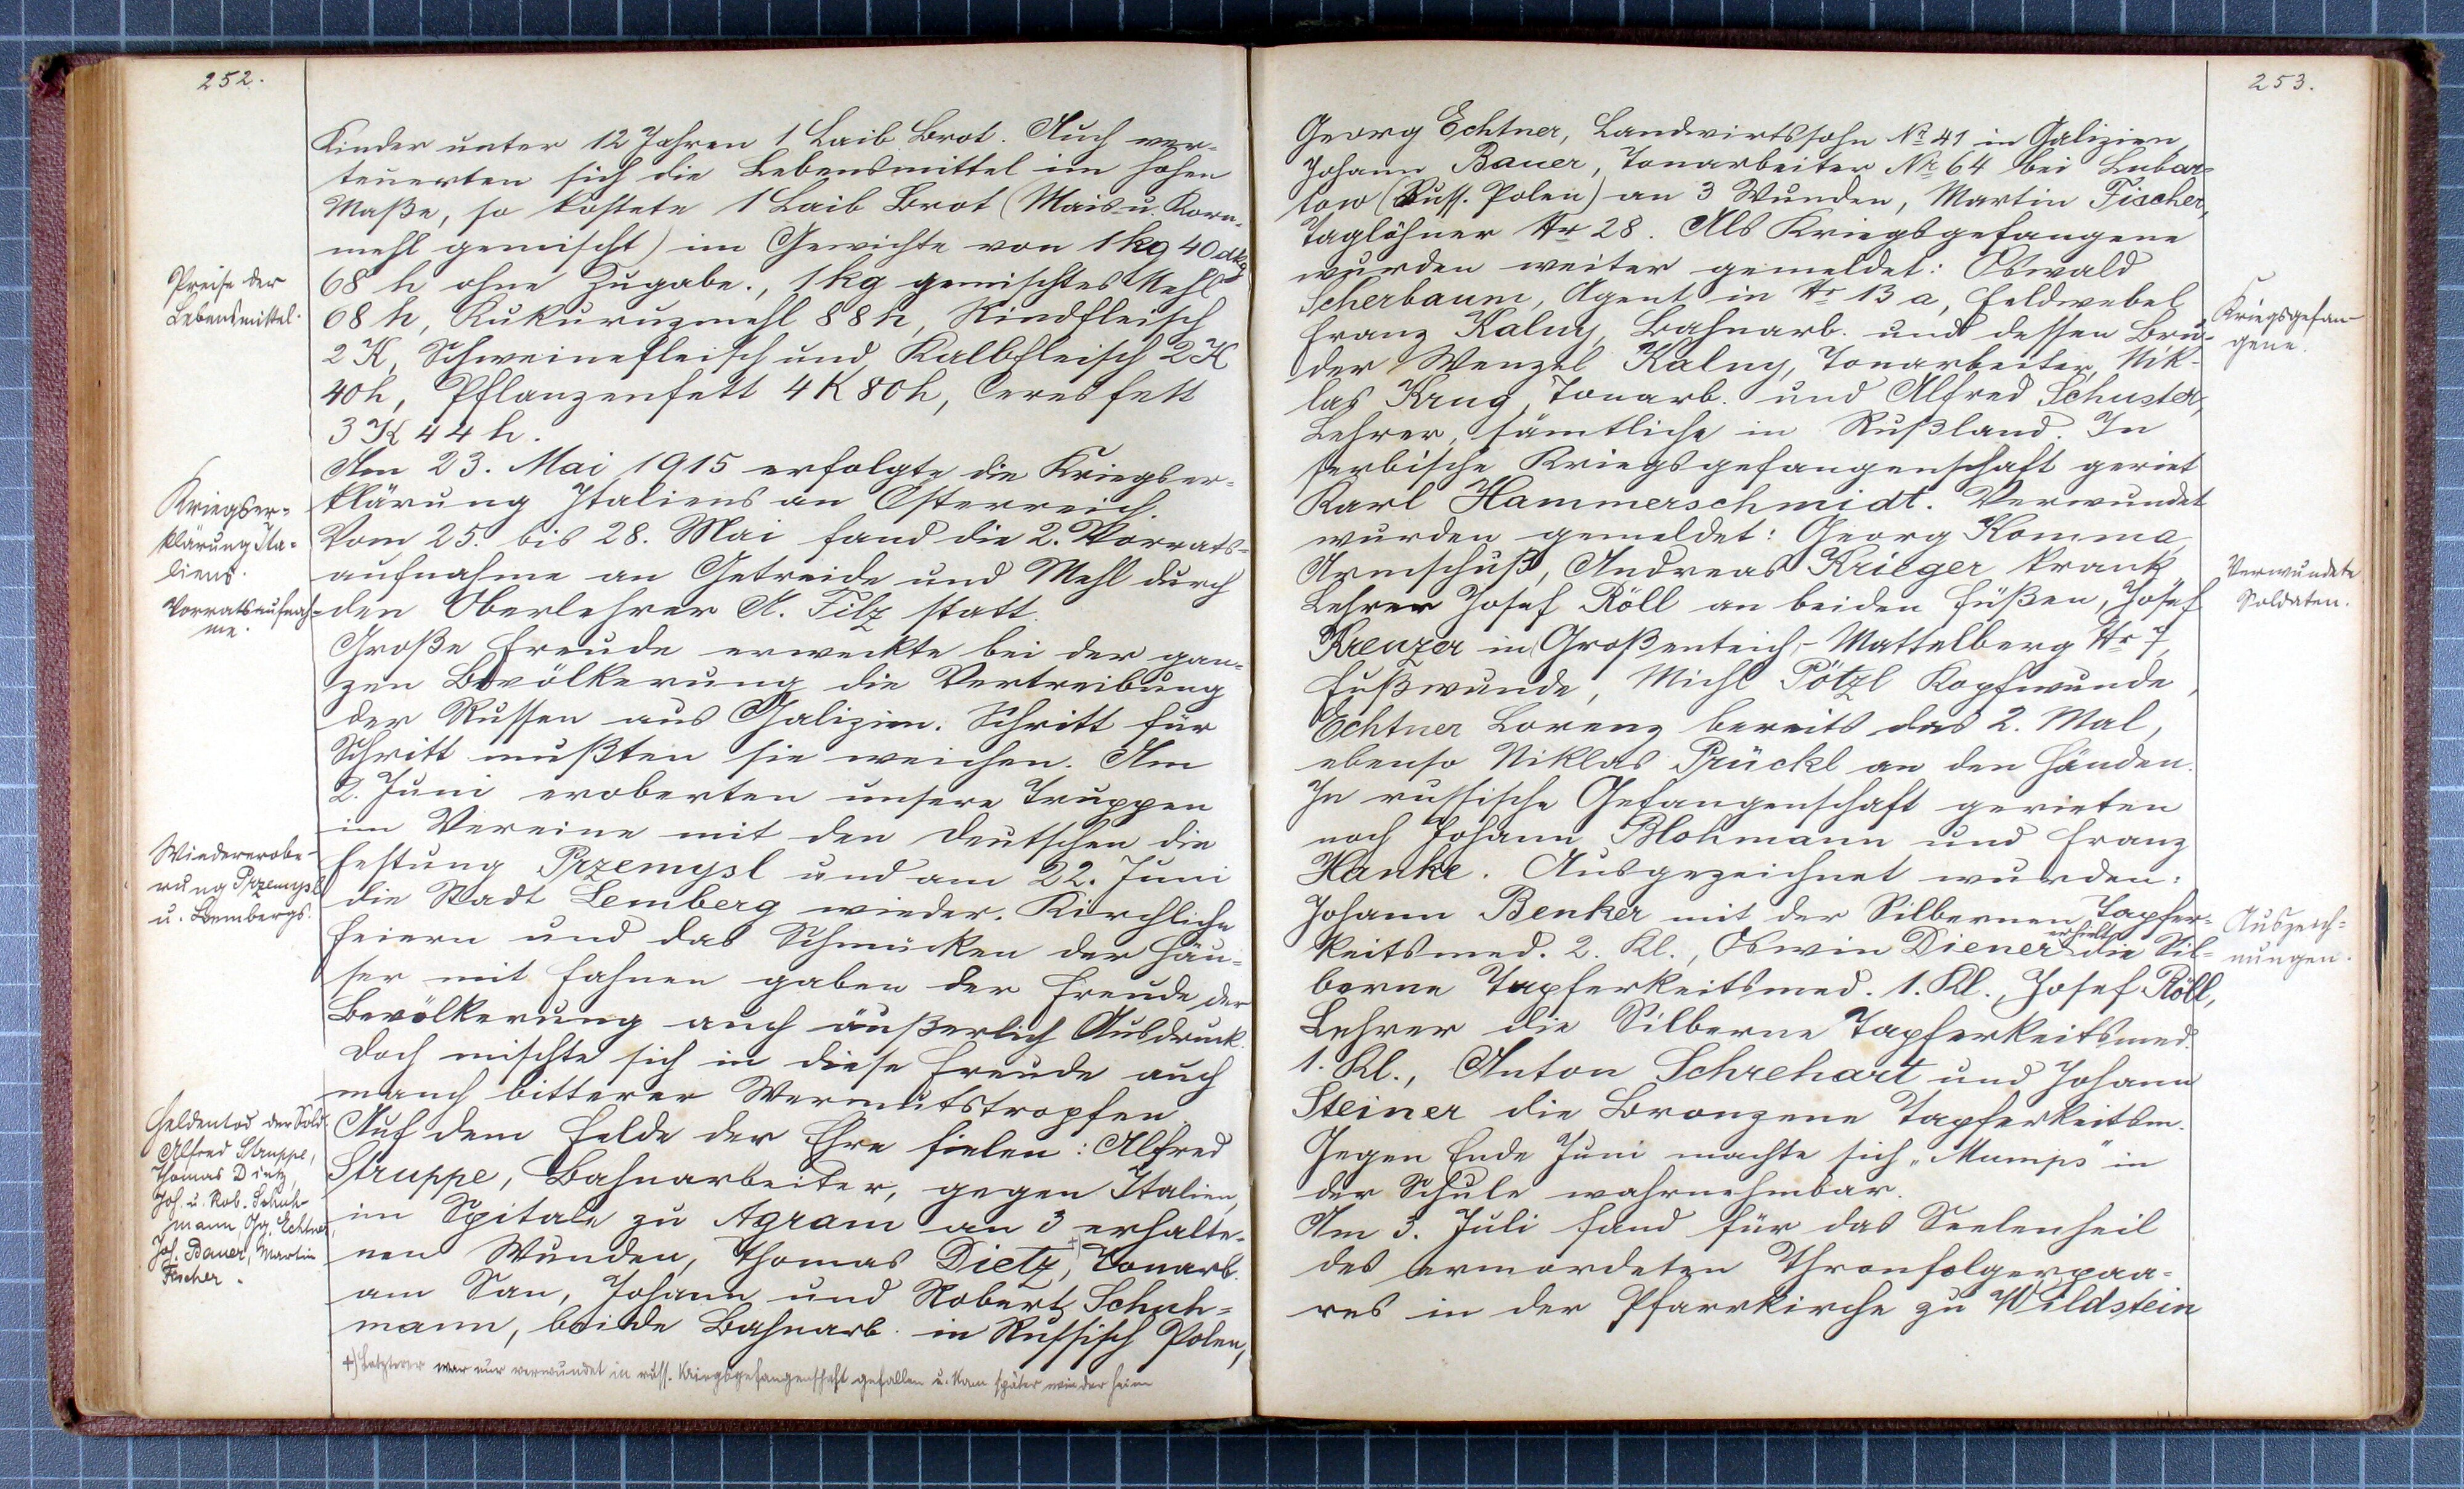 252.
Kinder unter 12 Jahren 1 Laib Brot. Auch ver-
teuerten sich die Lebensmittel im hohen
Maße, so kostete 1 Laib Brot (Mais- u. Korn-
mehl gemischt) im Gewichte von 1 kg 40 dkg
68 h ohne Zugabe., 1 kg gemischtes Mehl
68 h, Kukuruzmehl 88 h, Rindfleisch
2 K, Schweinefleisch und Kalbfleisch 2 K
40 h, Pflanzenfett 4 K 80 h, Ceresfett
3 K 44 h.
Am 23. Mai 1915 erfolgte die Kriegser-
klärung Italiens an Österreich.
Vom 25. bis 28. Mai fand die 2. Vorrats-
aufnahme an Getreide und Mehl durch
den Oberlehrer A. Filz statt.
Große Freude erweckte bei der gan-
zen Bevölkerung die Vertreibung
der Russen aus Galizien. Schritt für
Schritt mußten sie weichen. Am
2. Juni eroberten unsere Truppen
im Vereine mit den Deutschen die
Festung Przemysl und am 22. Juni
die Stadt Lemberg wieder. Kirchliche
Feiern und das Schmücken der Häu-
ser mit Fahnen gaben der Freude der
Bevölkerung auch äußerlich Ausdruck.
Doch mischte sich in diese Freude auch
manch bitterer Wermutstropfen.
Auf dem Felde der Ehre fielen: Alfred
Struppe, Bahnarbeiter, gegen Italien,
im Spitale zu Agram an 3 erhalte-
nen Wunden, Thomas Dietz,+) Tonarb.
am San, Johann und Robert Schuh-
mann, beide Bahnarb. in Russisch Polen,
+) Letzterer war nur verwundet in russ. Kriegsgefangenschaft gefallen u. kam später wieder heim
Preise der
Lebensmittel.
Kriegser-
klärung Ita-
liens.
Vorratsaufnah-
me.
Wiedererobe-
rung Przemysl
u. Lembergs.
Heldentod der Sold.
Alfred Struppe,
Thomas Dietz,
Joh. u. Rob. Schuh-
mann, Gg. Echtner,
Joh. Bauer, Martin
Fischer.
253.
Georg Echtner, Landwirtssohn Nr 41 in Galizien,
Johann Bauer, Tonarbeiter Nr 64 bei Lubar-
tow (Russ. Polen) an 3 Wunden, Martin Fischer,
Taglöhner Nr 28. Als Kriegsgefangene
wurden weiter gemeldet: Oswald
Scherbaum, Agent in Nr 13 a, Feldwebel
Franz Kalny, Bahnarb. und dessen Bru-
der Wenzl Kalny, Tonarbeiter, Nik-
las Krug, Tonarb. und Alfred Schuster,
Lehrer, sämtliche in Rußland. In
serbische Kriegsgefangenschaft geriet
Karl Hammerschmidt. Verwundet
wurden gemeldet: Georg Komma
Armschuß, Andreas Krieger krank
Lehrer Josef Röll an beiden Füßen, Josef
Kreuzer in Großenteich-Mattelberg Nr 7,
Fußwunde, Michl Pötzl Kopfwunde,
Echtner Lorenz bereits das 2. Mal,
ebenso Niklas Prückl an den Händen.
In russische Gefangenschaft gerieten
noch Johann Blohmann und Franz
Hanke. Ausgezeichnet wurden:
Johann Benker mit der Silbernen Tapfer-
keitsmed. 2. Kl., Oswin Diener erhielt die Sil-
berne Tapferkeitsmed. 1. Kl., Josef Röll,
Lehrer die Silberne Tapferkeitsmed.
1. Kl., Anton Schrehart und Johann
Steiner die Bronzene Tapferkeitsm.
Gegen Ende Juni machte sich „Mumps" in
der Schule wahrnehmbar.
Am 3. Juli fand für das Seelenheil
des ermordeten Thronfolgerpaa-
res in der Pfarrkirche zu Wildstein
Kriegsgefan-
gene.
Verwundete
Soldaten.
Auszeich-
nungen.